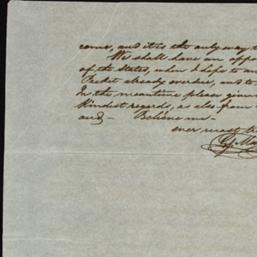 come, and it is the only way t
We shall have an oppo
of the States, when I hope to an
Packet already overdue, and to
In the meantime please give
Kindest regards, as also from
and — Believe me —
ever most tr